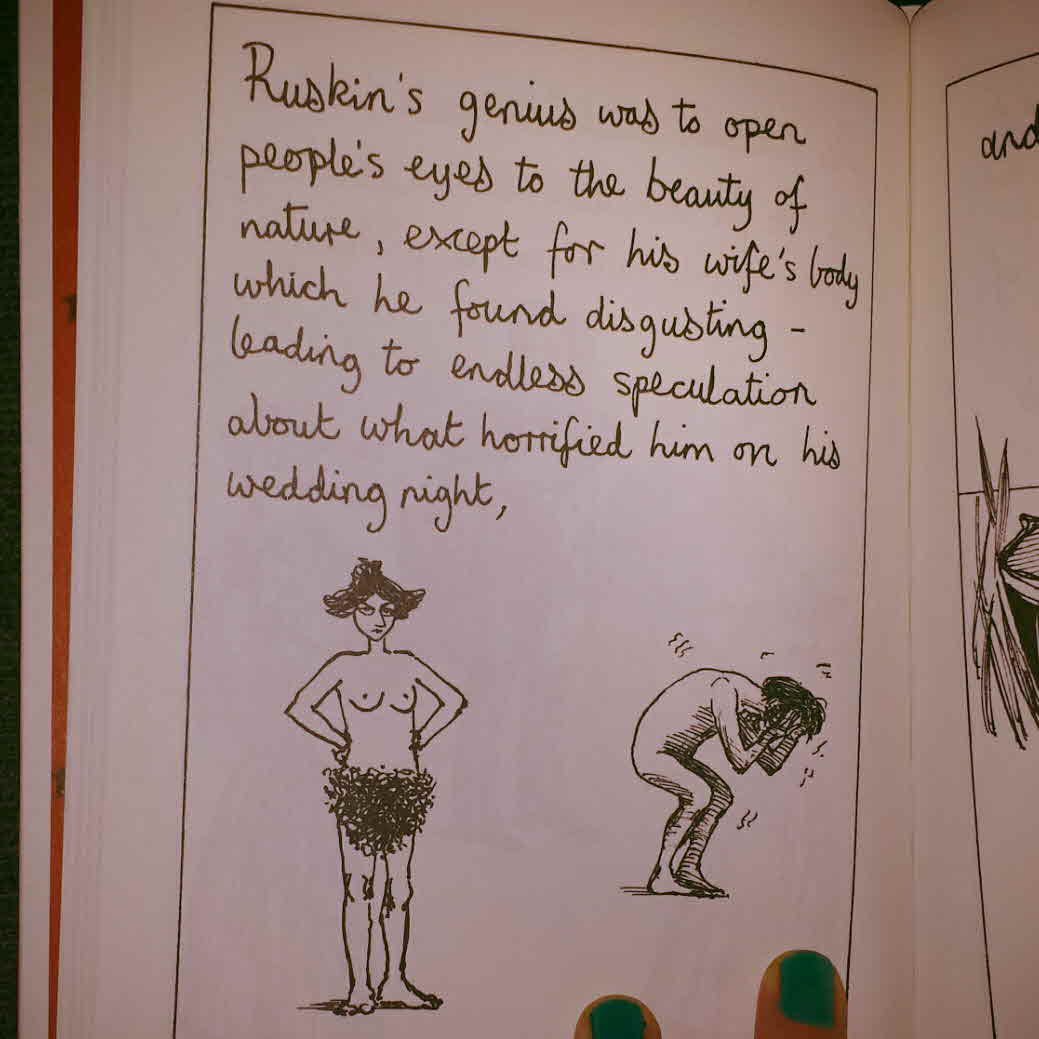 Ruskin's genius was to open
people's eyes to the beauty of
nature, except for his wife's body
which he found disgusting -
leading to endless speculation
about what horrified him on his
wedding night,
and